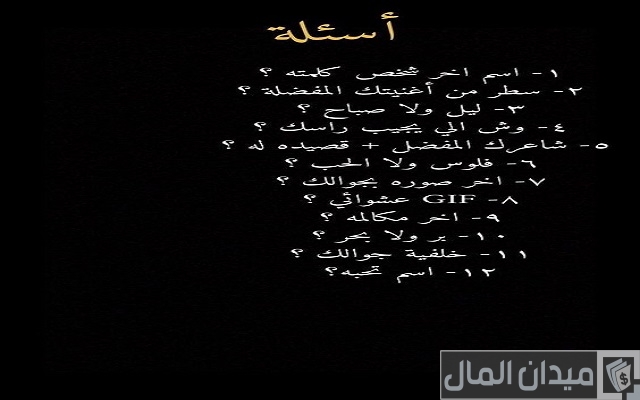 أسئلة
١- اسم اخر شخص كلمته ؟
٢- سطر من أغنيتك المفضلة ؟
٣- ليل ولا صباح ؟
٤- وش الي يجيب راسك ؟
٥- شاعرك المفضل + قصيده له ؟
٦- فلوس ولا الحب ؟
٧- اخر صوره بجوالك ؟
٨- GIF عشوائي ؟
٩- اخر مكالمه ؟
١٠- بر ولا بحر ؟
١١- خلفية جوالك ؟
١٢- اسم تحبه؟
ميدان المال